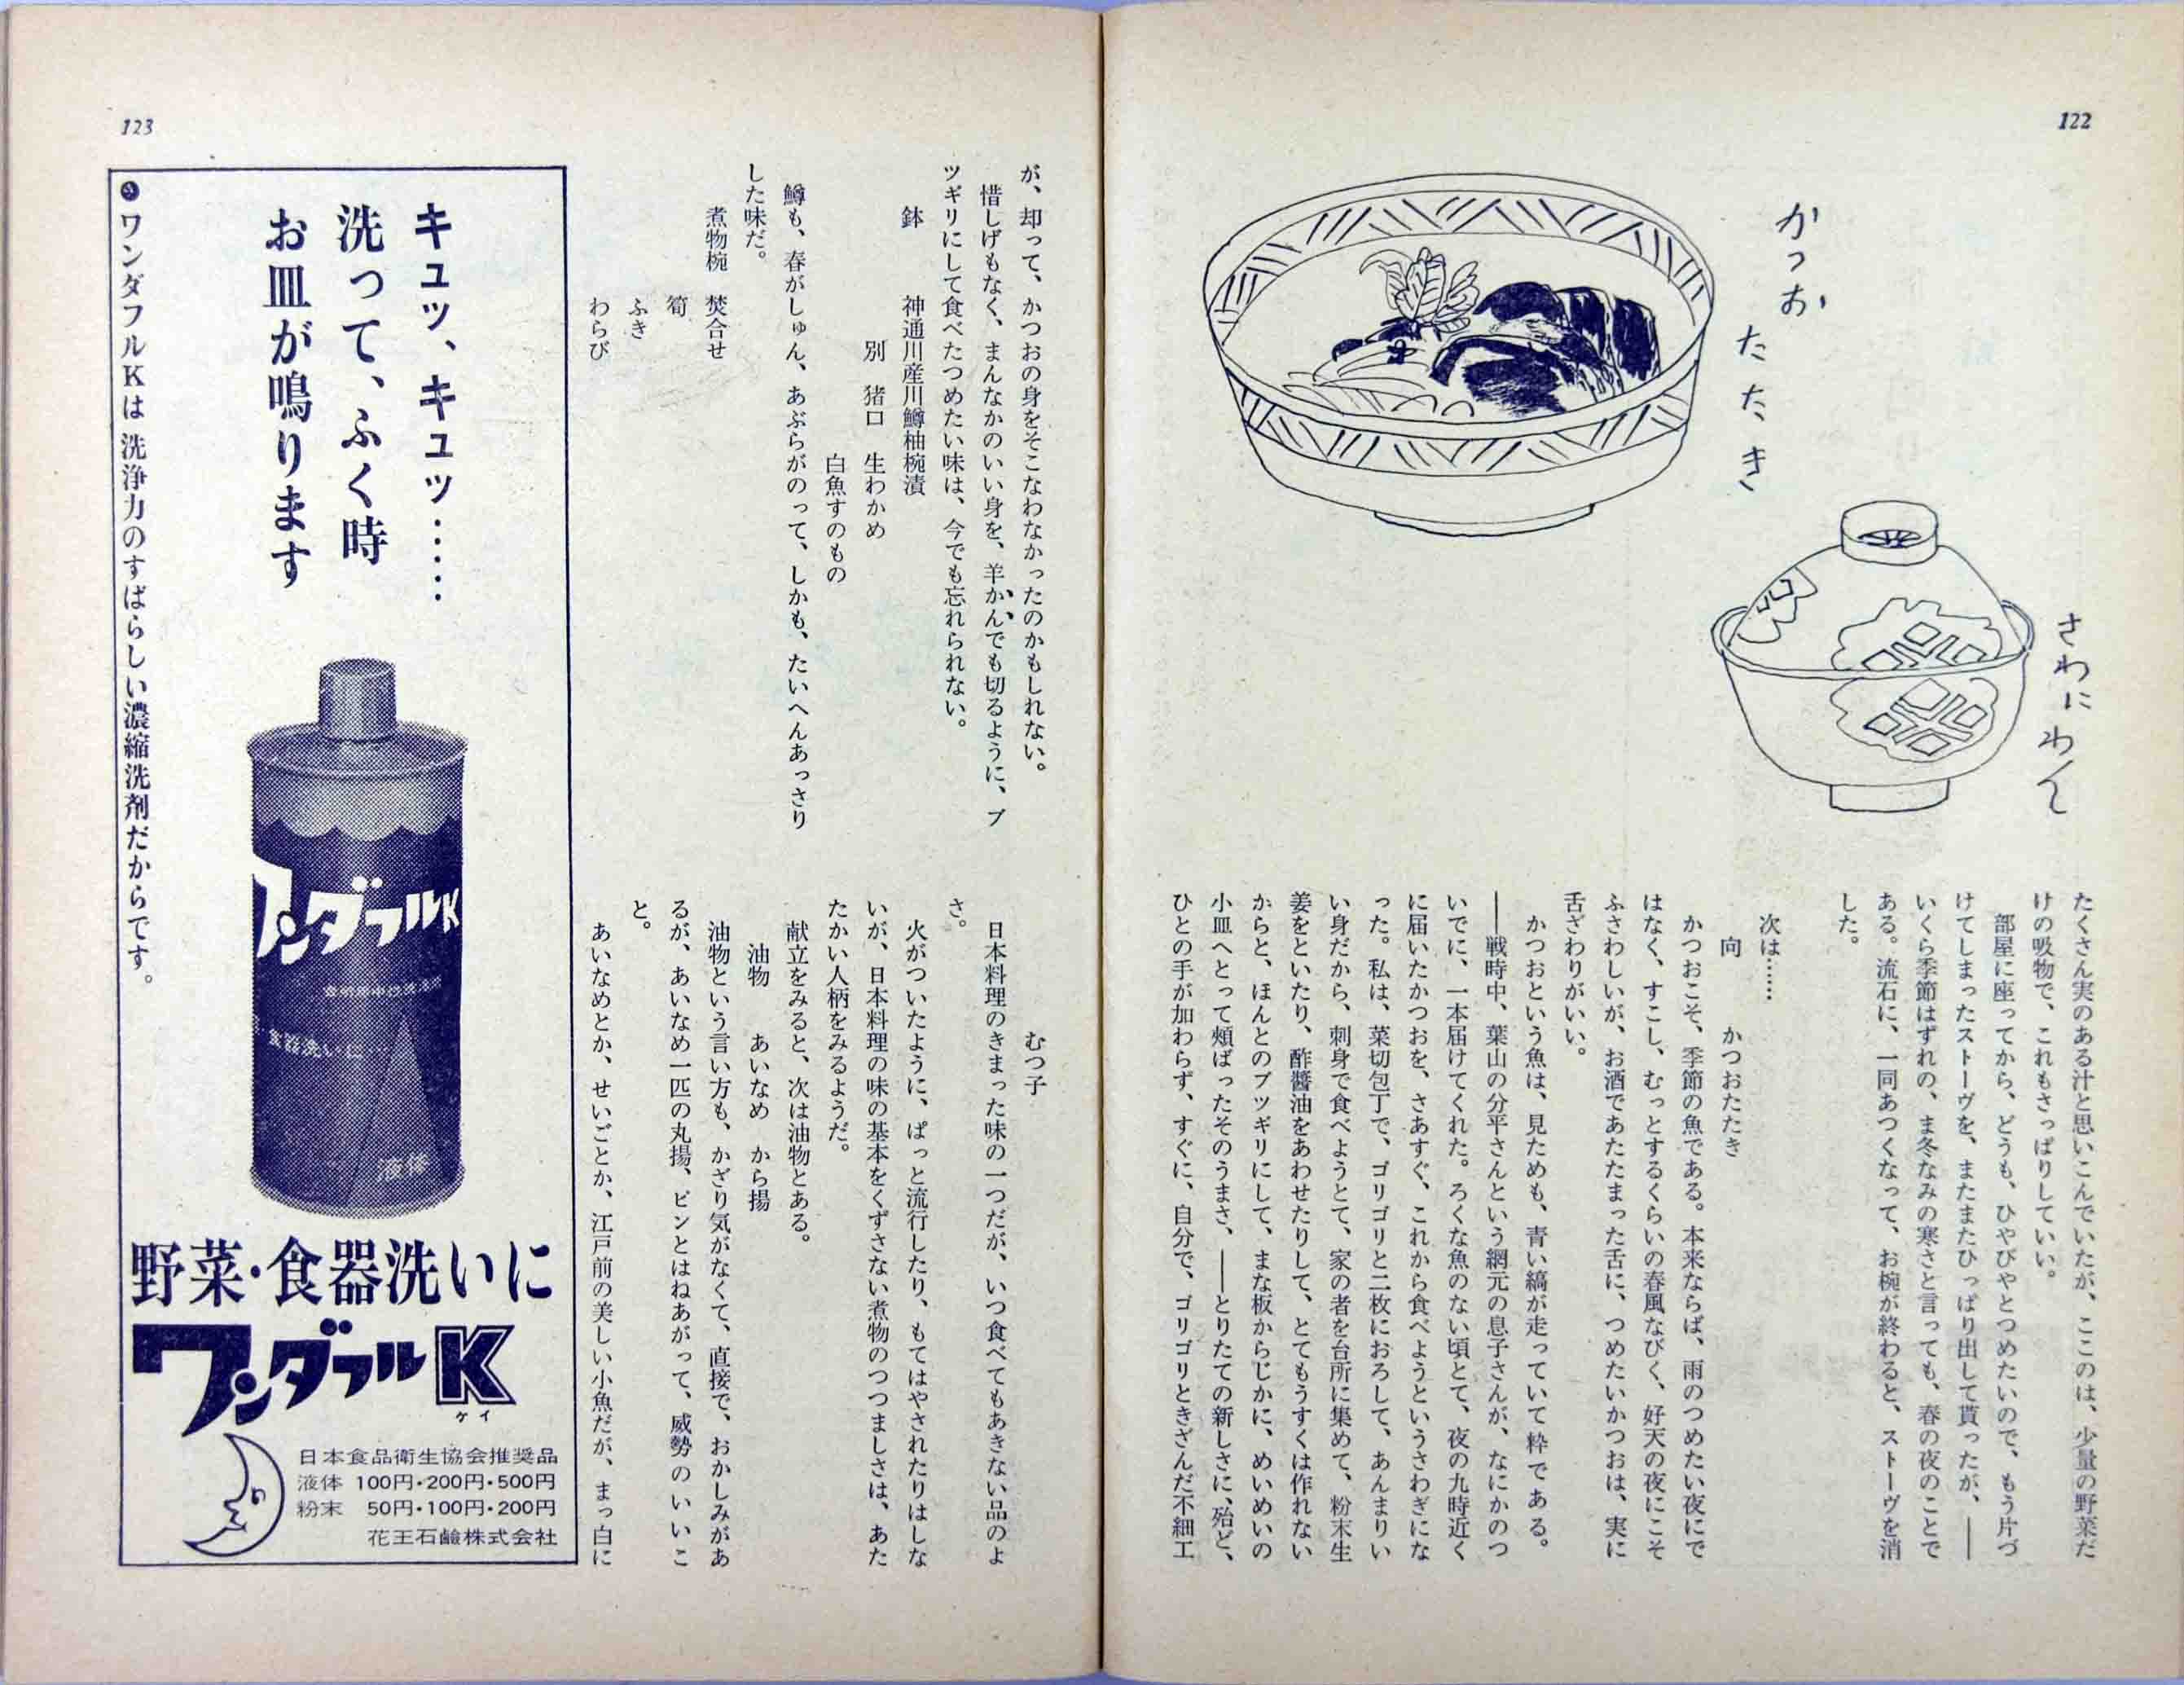 122
かつお
たたき
さわに
わん
たくさん実のある汁と思いこんでいたが、ここのは、少量の野菜だ
けの吸物で、これもさっぱりしていい。
部屋に座ってから、どうも、ひやびやとつめたいので、もう片づ
けてしまったストーヴを、またまたひっぱり出して貰ったが、――
いくら季節はずれの、ま冬なみの寒さと言っても、春の夜のことで
ある。流石に、一同あつくなって、お椀が終わると、ストーヴを消
した。
次は……
向　かつおたたき
かつおこそ、季節の魚である。本来ならば、雨のつめたい夜にで
はなく、すこし、むっとするくらいの春風なびく、好天の夜にこそ
ふさわしいが、お酒であたたまった舌に、つめたいかつおは、実に
舌ざわりがいい。
かつおという魚は、見ためも、青い縞が走っていて粋である。
――戦時中、葉山の分平さんという網元の息子さんが、なにかのつ
いでに、一本届けてくれた。ろくな魚のない頃とて、夜の九時近く
に届いたかつおを、さあすぐ、これから食べようというさわぎにな
った。私は、菜切包丁で、ゴリゴリと二枚におろして、あんまりい
い身だから、刺身で食べようとて、家の者を台所に集めて、粉末生
姜をといたり、酢醬油をあわせたりして、とてもうすくは作れない
からと、ほんとのブツギリにして、まな板からじかに、めいめいの
小皿へとって頬ばったそのうまさ、――とりたての新しさに、殆ど、
ひとの手が加わらず、すぐに、自分で、ゴリゴリときざんだ不細工
123
が、却って、かつおの身をそこなわなかったのかもしれない。
惜しげもなく、まんなかのいい身を、羊かんでも切るように、ブ
ツギリにして食べたつめたい味は、今でも忘れられない。
鉢　神通川産川鱒柚椀漬
別　猪口　生わかめ
白魚すのもの
鱒も、春がしゅん、あぶらがのって、しかも、たいへんあっさり
した味だ。
煮物椀　焚合せ
筍
ふき
わらび
むつ子
日本料理のきまった味の一つだが、いつ食べてもあきない品のよ
さ。
火がついたように、ぱっと流行したり、もてはやされたりはしな
いが、日本料理の味の基本をくずさない煮物のつつましさは、あた
たかい人柄をみるようだ。
献立をみると、次は油物とある。
油物　あいなめ　から揚
油物という言い方も、かざり気がなくて、直接で、おかしみがあ
るが、あいなめ一匹の丸揚、ピンとはねあがって、威勢のいいこ
と。
あいなめとか、せいごとか、江戸前の美しい小魚だが、まっ白に
キュッ、キュッ……
洗って、ふく時
お皿が鳴ります
ワンダフルKは洗浄力のすばらしい濃縮洗剤だからです。
ワンダフルK
食器洗いに
液体
野菜・食器洗いに
ワンダフルK
ケイ
日本食品衛生協会推奨品
液体 100円・200円・500円
粉末 50円・100円・200円
花王石鹼株式会社